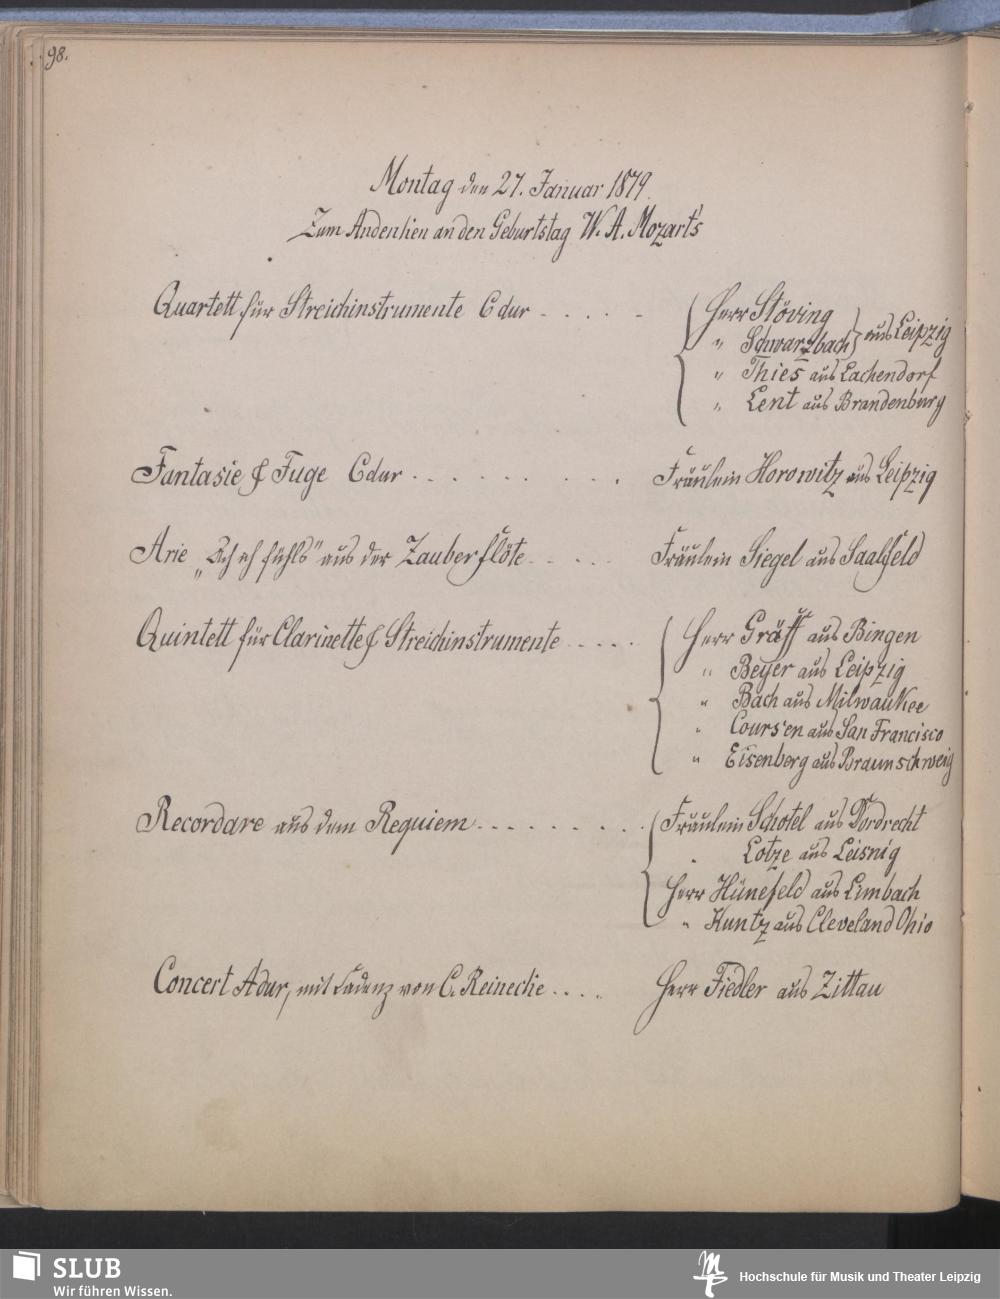 98.
Montag den 27. Januar 1879.
Zum Andenken an den Geburtstag W. A. Mozart's
Quartett für Streichinstrumente C dur . . . . . Herr Stöving
" Schwarzbach } aus Leipzig
" Thies aus Lachendorf
" Lent aus Brandenburg
Fantasie & Fuge C dur . . . . . . . . . Fräulein Horowitz aus Leipzig
Arie „Ach ich fühls" aus der Zauberflöte . . . . . Fräulein Siegel aus Saalfeld
Quintett für Clarinette & Streichinstrumente . . . . . Herr Gräff aus Bingen
" Beyer aus Leipzig
" Bach aus Milwaukee
" Coursen aus San Francisco
" Eisenberg aus Braunschweig
Recordare aus dem Requiem . . . . . . . . . . Fräulein Schotel aus Dordrecht
" Lotze aus Leisnig
Herr Hünefeld aus Limbach
" Kuntz aus Cleveland Ohio
Concert A dur, mit Cadenz von C. Reinecke . . . . Herr Fiedler aus Zittau
SLUB
Wir führen Wissen.
Hochschule für Musik und Theater Leipzig